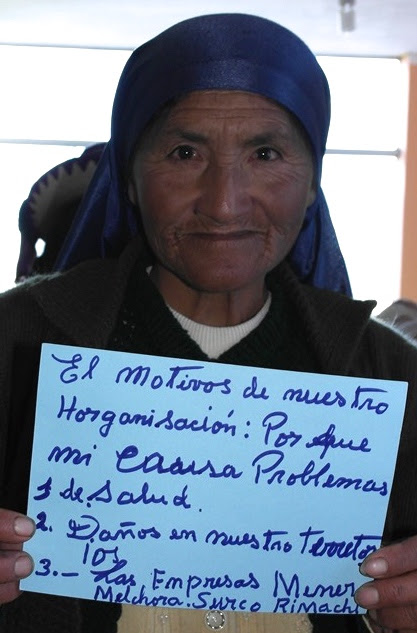 El Motivos de nuestro
Horganisación: Por que
mi causa Problemas
1 de. Salud.
2. Daños en nuestro Terretor
Ios
3.- Las Empresas Miner
Melchora. Surco Rimachi